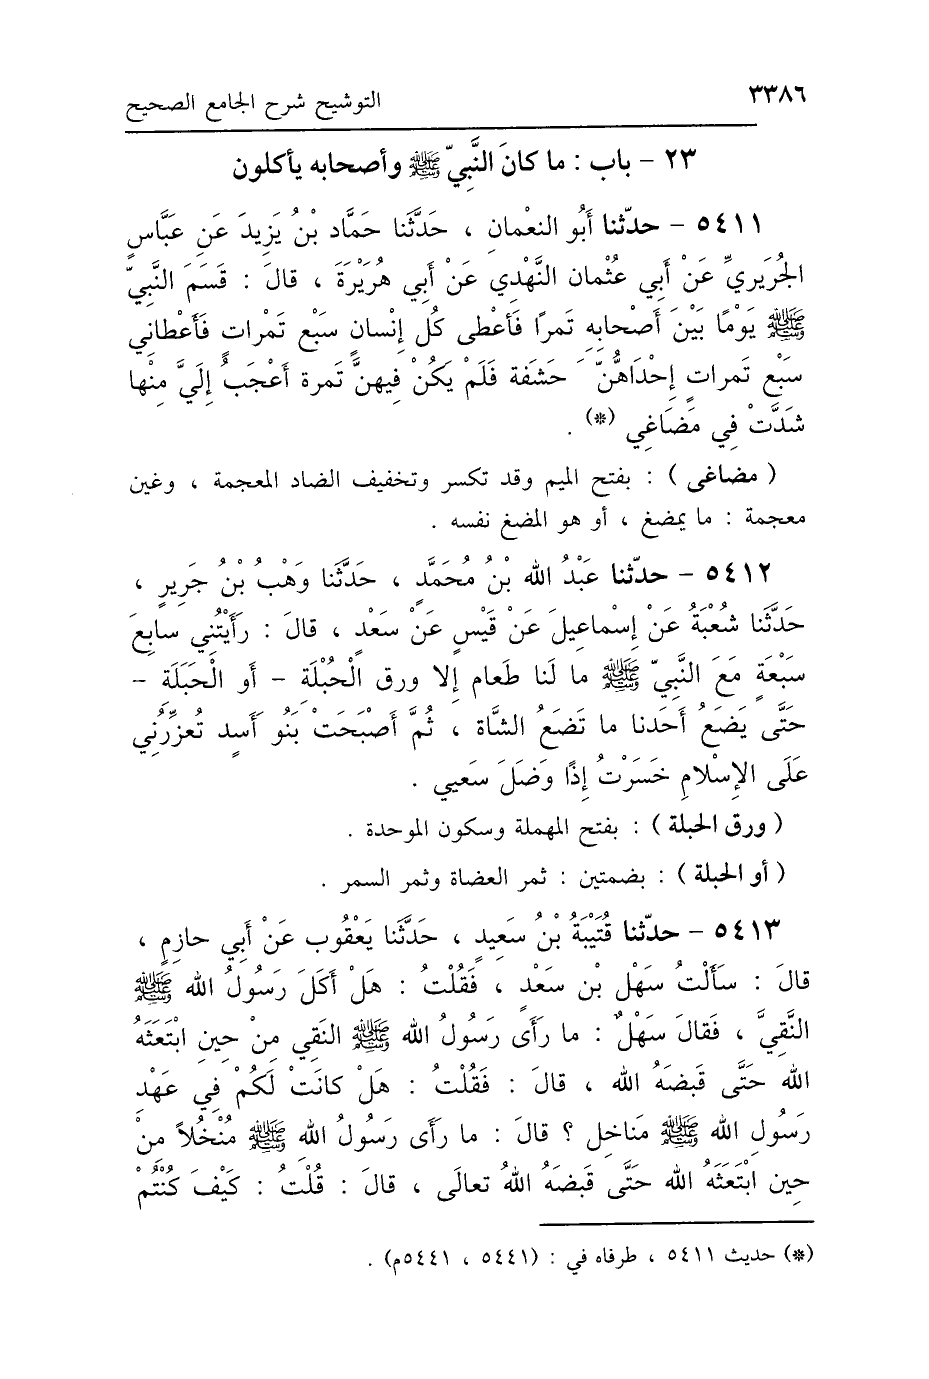 ٣٣٨٦
التوشيح شرح الجامع الصحيح
٢٣ - باب : ما كانَ النَّبِيّ ﷺ وأصحابه يأكلون
٥٤١١ - حدّثنا أَبُو النعْمانِ ، حَدَّثَنا حَمَّاد بْنُ يَزِيدَ عَنِ عَبَّاسٍ
الجُرَيريِّ عَنْ أَبي عثْمان النَّهْدِي عَنْ أبي هُرَيْرَةَ ، قالَ : قَسَمَ النَّبِيّ
ﷺ يَوْمًا بَيْنَ أَصْحابهِ تَمرًا فَأَعْطى كُل إِنْسانٍ سَبْع تَمْراتٍ فَأَعْطاني
سَبْع تَمراتٍ إِحْدَاهُنَّ حَشفة فَلَمْ يَكُنْ فيهنَّ تَمرة أَعْجَبُ إِلَيَّ مِنْها
شَدَّتْ فِي مَضَاغِي (*) .
( مضاغى ) : بفتح الميم وقد تكسر وتخفيف الضاد المعجمة ، وغين
معجمة : ما يمضغ ، أو هو المضغ نفسه .
٥٤١٢ - حدّثنا عَبْدُ الله بْنُ مُحَمَّدٍ ، حَدَّثَنا وَهْبُ بْنُ جَرِيرٍ ،
حَدَّثَنا شُعْبَةُ عَنْ إِسْماعِيلَ عَنْ قَيْسٍ عَنْ سَعْدٍ ، قالَ : رَأَيْتُنِي سابِعَ
سَبْعَةٍ مَعَ النَّبِيّ ﷺ ما لَنا طَعام إِلا ورق الْحُبْلَةِ - أَو الْحَبَلَةِ -
حَتَّى يَضَعُ أَحَدنا ما تَضَعُ الشَّاة ، ثُمَّ أَصْبَحَتْ بَنُو أَسد تُعزِّرُنِي
عَلَى الإِسْلامِ خَسَرْتُ إِذًا وَضَلَ سَعيي .
( ورق الحبلة ) : بفتح المهملة وسكون الموحدة .
( أو الحبلة ) : بضمتين : ثمر العضاة وثمر السمر .
٥٤١٣ - حدّثنا قُتَيْبَةُ بْنُ سَعَيدٍ ، حَدَّثَنا يَعْقُوب عَنْ أَبي حازِمٍ ،
قالَ : سَأَلْتُ سَهْل بْن سَعْدٍ ، فَقُلْتُ : هَلْ أَكَلَ رَسُولُ الله ﷺ
النَّقِيَّ ، فَقالَ سَهْلٌ : ما رَأَى رَسُولُ الله ﷺ النَقِي مِنْ حِينِ ابْتَعَثَهُ
الله حَتَّى قَبضَهُ الله ، قالَ : فَقُلْتُ : هَلْ كانَتْ لَكُمْ فِي عَهْدِ
رَسُولِ الله ﷺ مَناخِل ؟ قالَ : ما رأَى رَسُولُ اللهِ ﷺ مُنْخُلاً مِنْ
حِينِ ابْتَعَثَهُ الله حَتَّى قَبضَهُ اللهُ تعالَى ، قالَ : قُلْتُ : كَيْفَ كُنْتُمْ
(*) حديث ٥٤١١ ، طرفاه في : (٥٤٤١ ، ٥٤٤١م) .